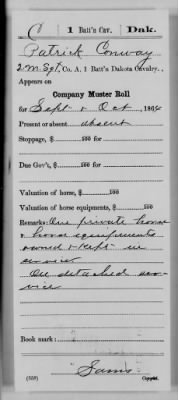 C | 1 Batt'n Cav. | Dak.
Patrick Conway
2. M. Sgt, Co. A, 1 Batt'n Dakota Cavalry.
Appears on
Company Muster Roll
for Sept & Oct, 1864
Present or absent absent
Stoppage, $ 100 for
Due Gov't, $ 100 for
Valuation of horse, $ 100
Valuation of horse equipments, $ 100
Remarks: One private horse
& horse equipments
owned & kept in
service
On detached ser-
vice
Book mark:
(358)
Copyist.